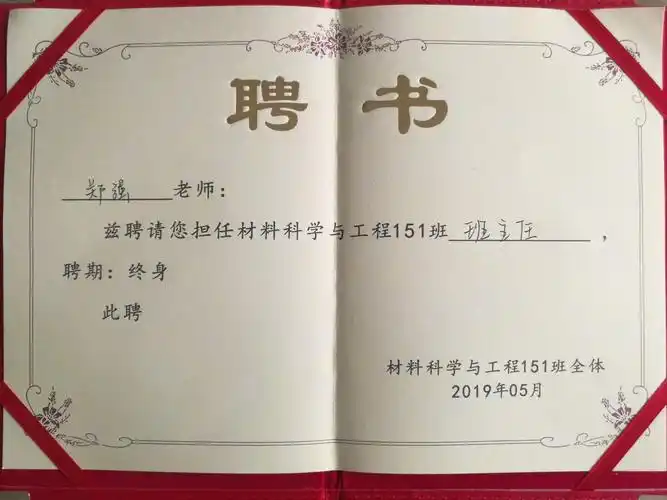 聘书
郑强 老师：
兹聘请您担任材料科学与工程151班 班主任 ，
聘期：终身
此聘
材料科学与工程151班全体
2019年05月